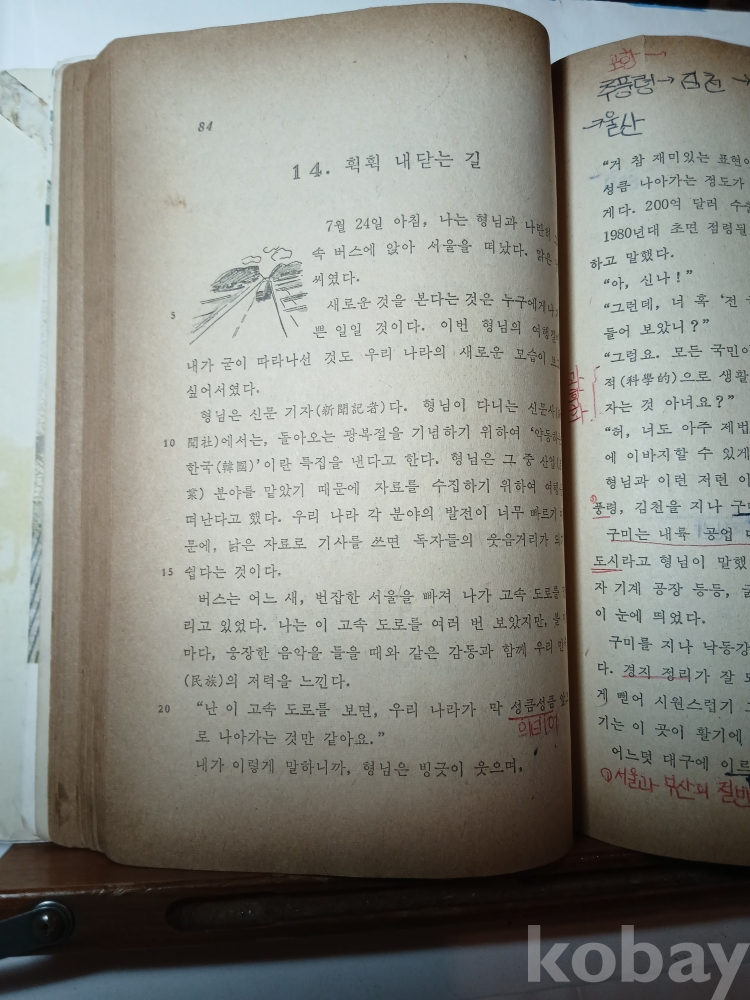 84
14. 획획 내닫는 길
7월 24일 아침, 나는 형님과 나란히
속 버스에 앉아 서울을 떠났다. 맑은
씨였다.
5
새로운 것을 본다는 것은 누구에게나
쁜 일일 것이다. 이번 형님의
내가 굳이 따라나선 것도 우리 나라의 새로운 모습이
싶어서였다.
형님은 신문 기자(新聞記者)다. 형님이 다니는 신문사
10 聞社)에서는, 돌아오는 광복절을 기념하기 위하여 ‘약동하는
한국(韓國)’이란 특집을 낸다고 한다. 형님은 그 중 산업
業) 분야를 맡았기 때문에 자료를 수집하기 위하여
떠난다고 했다. 우리 나라 각 분야의 발전이 너무 빠르기
문에, 낡은 자료로 기사를 쓰면 독자들의 웃음거리가
15 쉽다는 것이다.
버스는 어느 새, 번잡한 서울을 빠져 나가 고속 도로를
리고 있었다. 나는 이 고속 도로를 여러 번 보았지만,
마다, 웅장한 음악을 들을 때와 같은 감동과 함께 우리
(民族)의 저력을 느낀다.
20 “난 이 고속 도로를 보면, 우리 나라가 막 성큼성큼
로 나아가는 것만 같아요.”
내가 이렇게 말하니까, 형님은 빙긋이 웃으며,
추풍령→김천→
울산
“거 참 재미있는 표현이
성큼 나아가는 정도가
게다. 200억 달러
1980년대 초면 점령될
하고 말했다.
“아, 신나!”
“그런데, 너 혹 ‘전
들어 보았니?”
“그럼요. 모든 국민이
적(科學的)으로 생활
자는 것 아녀요?”
“허, 너도 아주 제법
에 이바지할 수 있게
형님과 이런 저런 이
풍령, 김천을 지나 구미
구미는 내륙 공업
도시라고 형님이 말했
자 기계 공장 등등,
이 눈에 띄었다.
구미를 지나 낙동강
다. 경지 정리가 잘
게 뻗어 시원스럽기
기는 이 곳이 활기에
어느덧 대구에 이르
①서울과 부산의 절반
kobay